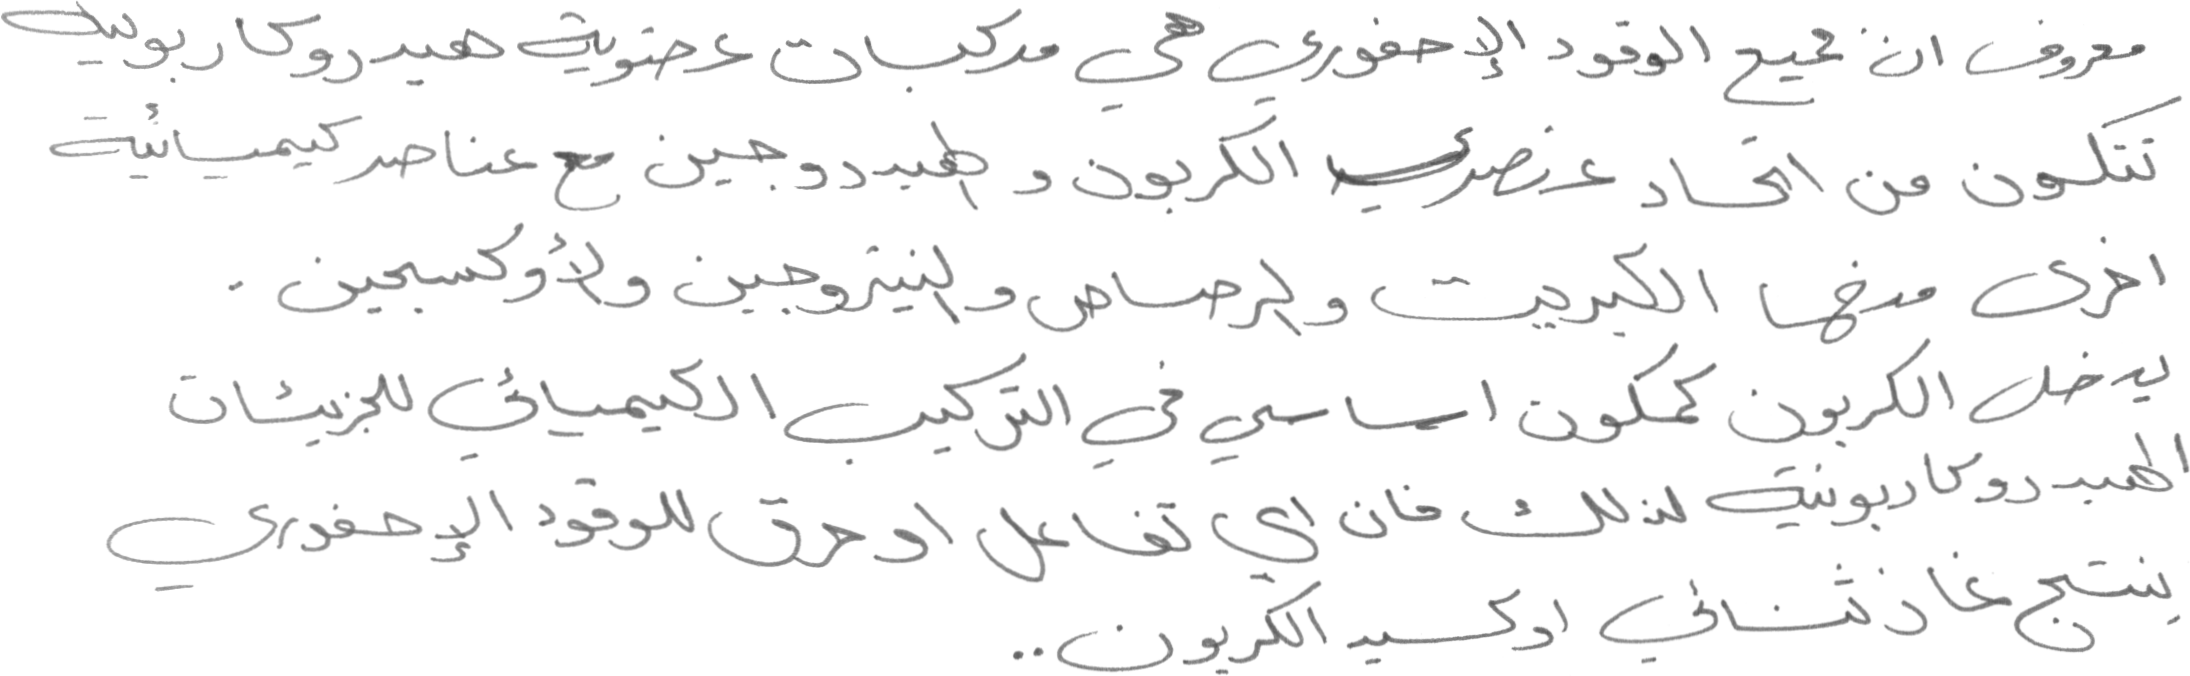 معروف ان جميع الوقود الإحفوري هي مركبات عضوية هيدروكاربونية
تتكون من اتحاد عنصري الكربون و الهيدروجين مع عناصر كيميائية
اخرى منها الكبريت والرصاص والنيتروجين ولأوكسجين .
يدخل الكربون كمكون اساسي في التركيب الكيميائي للجزيئات
الهيدروكاربونية لذلك فان اي تفاعل او حرق للوقود الإحفوري
ينتج غاز ثنائي اوكسيد الكربون ..